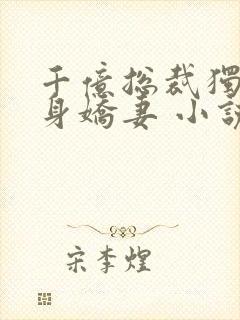 千億總裁獨
身嬌妻 小說
宋李煌